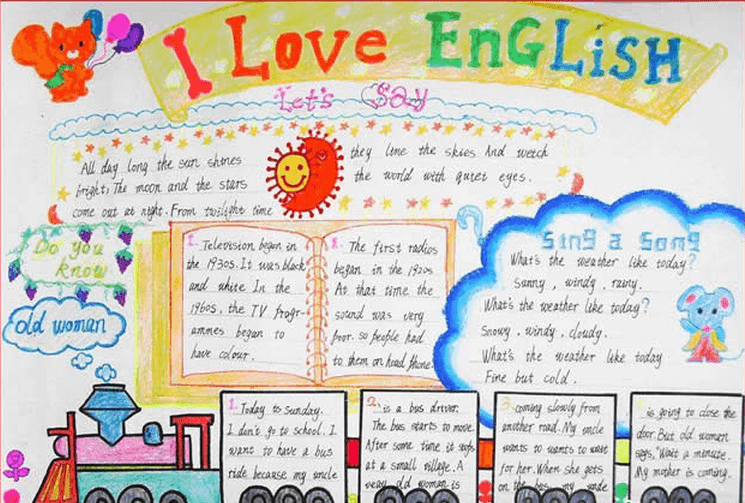 I LOVE EnGLiSH
Let's Say
All day long the sun shines
bright, The moon and the stars
come out at night. From twilight time
they line the skies And wetch
the world with quiet eyes.
Do you
know
old woman
1. Television began in
the 1930s. It was black
and white In the
1960s, the TV progr-
ammes began to
have colour.
2. The first radios
began in the 1920s
At that time the
sound was very
poor. so people had
to them on head phone
Sing a Song
What's the weather like today?
Sunny, windy, rainy.
What's the weather like today?
Snowy, windy, cloudy.
What's the weather like today
Fine but cold.
1. Today is Sunday.
I don't go to school. I
want to have a bus
ride because my uncle
2. is a bus driver.
The bus starts to move.
After some time it stops
at a small village. A
very old woman is
3. coming slowly from
another road. My uncle
wants to wants to wait
for her. When she gets
on the bus, my uncle
is going to close the
door. But old woman
says, "Wait a minute.
My mother is coming.